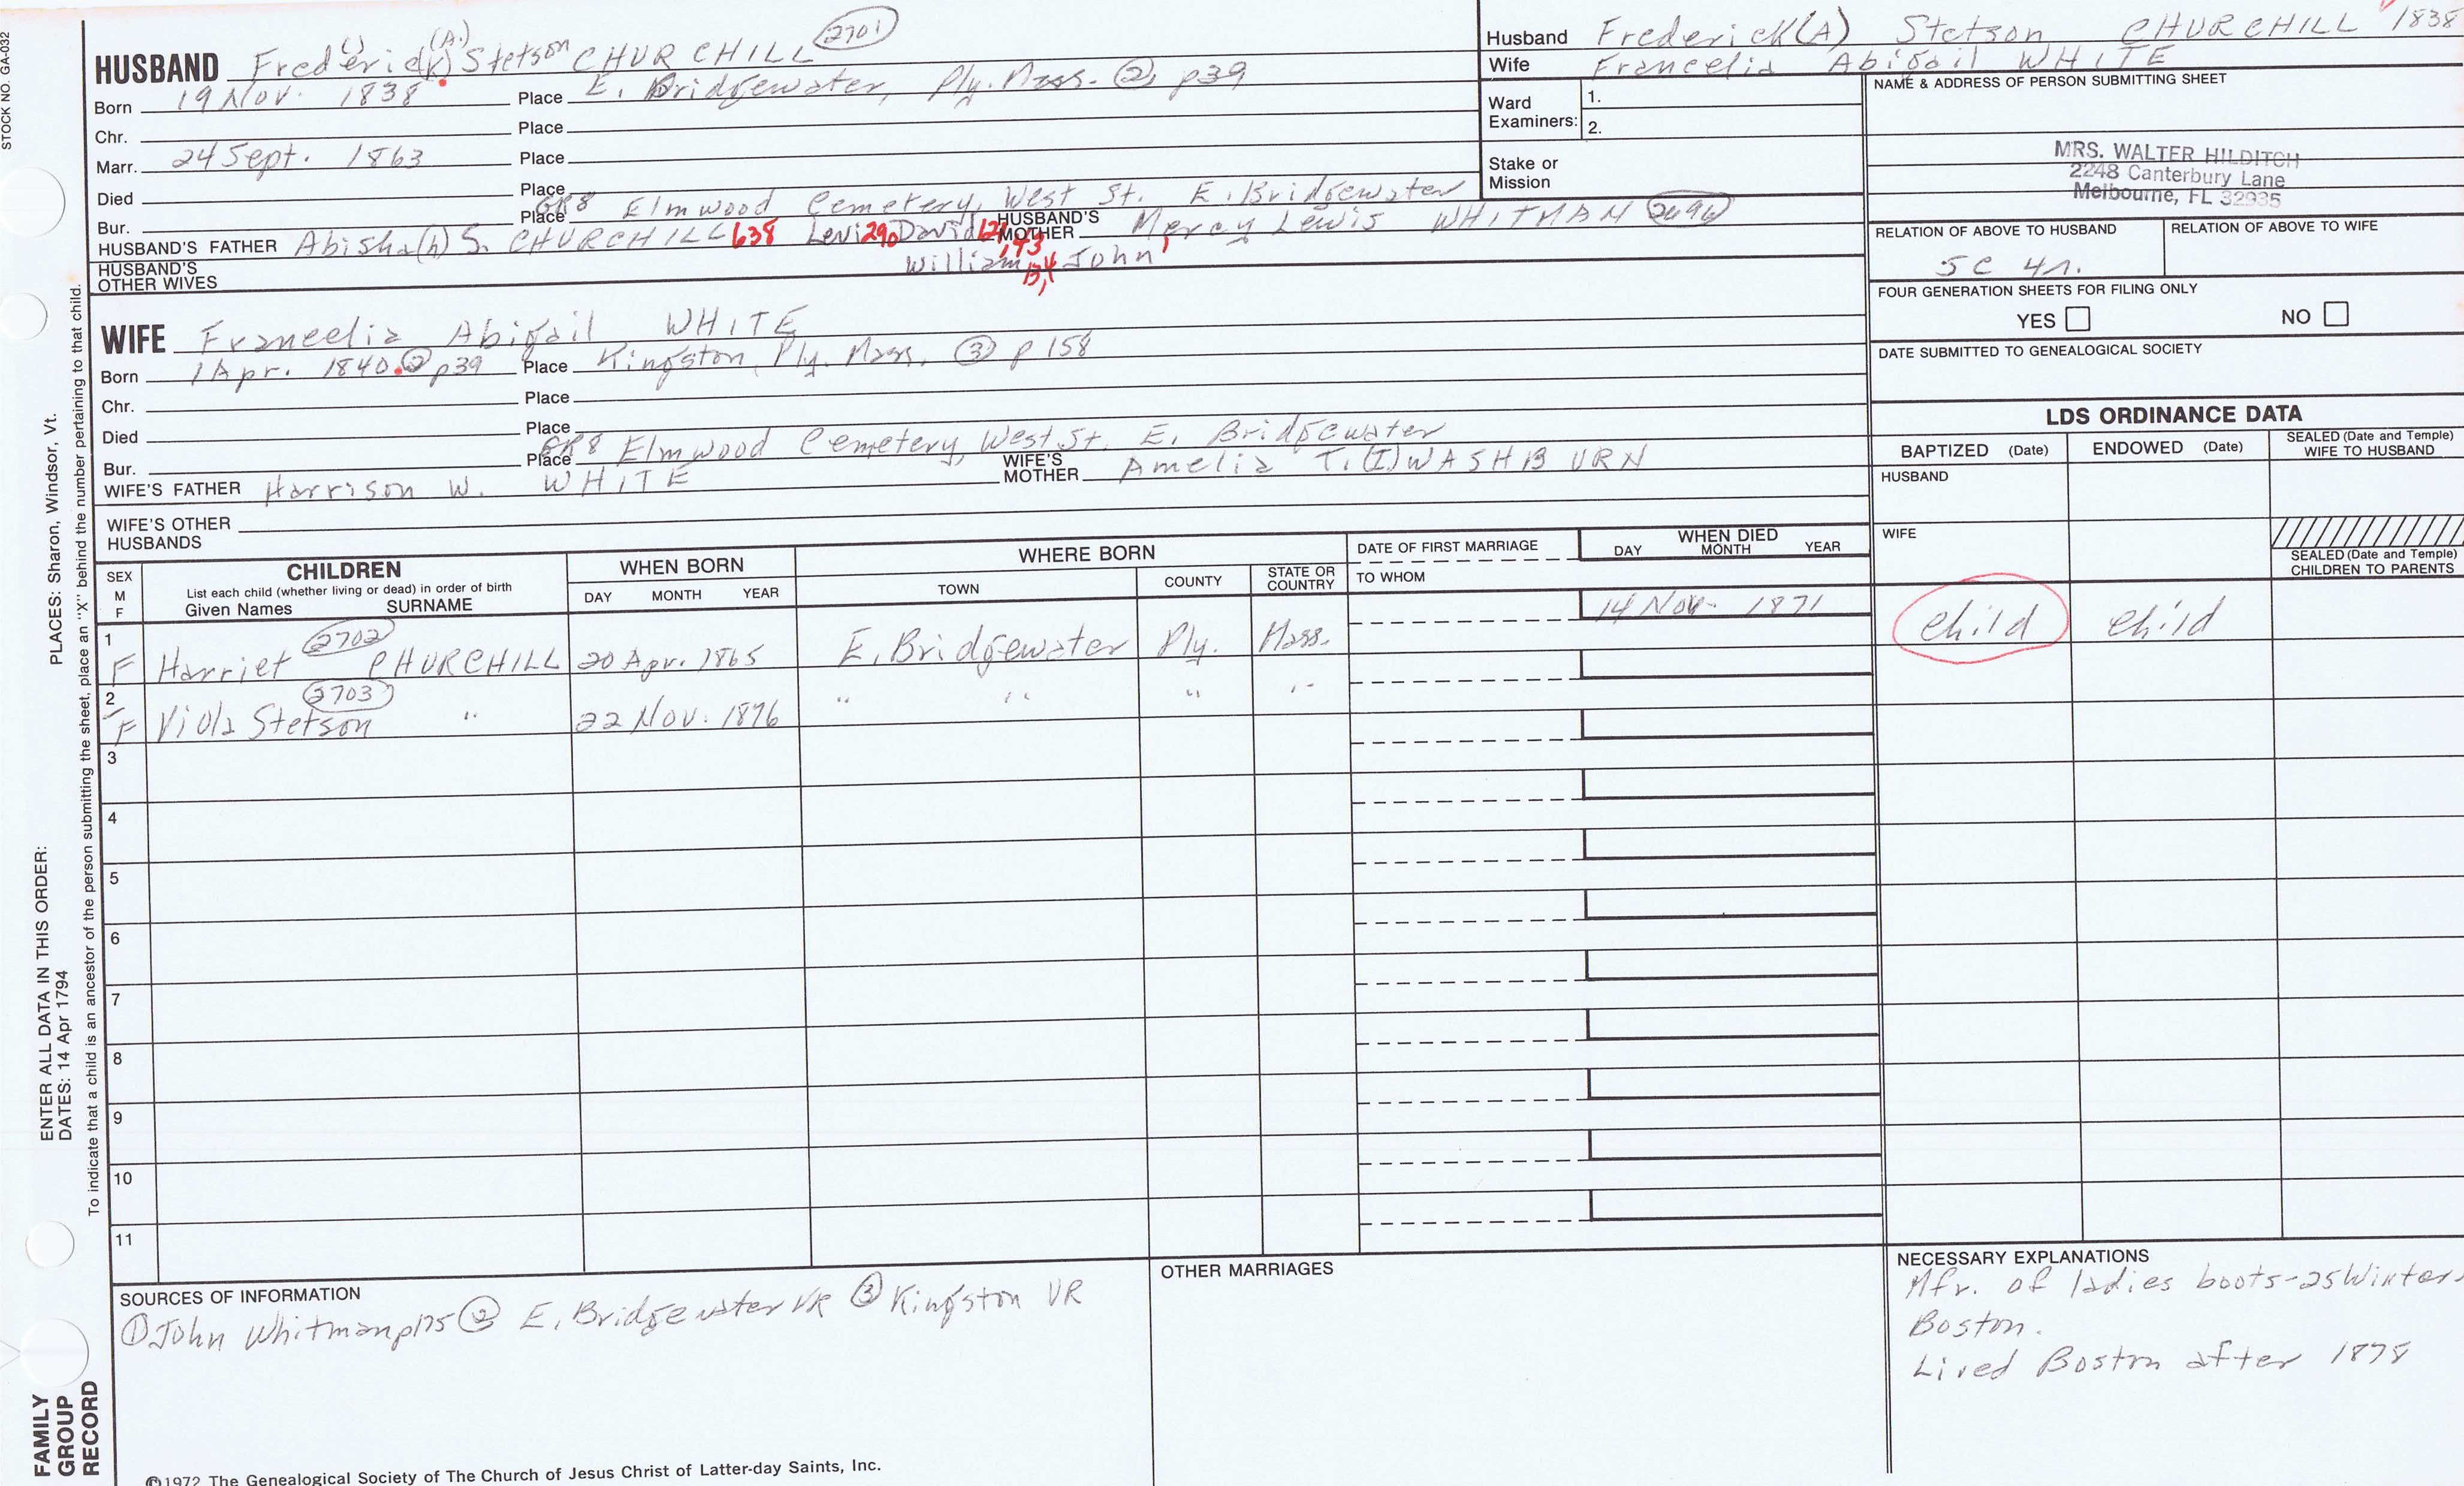 STOCK NO. GA-032
HUSBAND Frederic(k) (A.) Stetson CHURCHILL 2701
Born 19 Nov. 1838 Place E. Bridgewater, Ply. Mass. ② p39
Chr. Place
Marr. 24 Sept. 1863 Place
Died Place
Bur. Place GR8 Elmwood Cemetery, West St. E. Bridgewater
HUSBAND'S FATHER Abisha(h) S. CHURCHILL 638 Levi 290 David HUSBAND'S MOTHER Mercy Lewis WHITMAN 2696
William John
HUSBAND'S OTHER WIVES
Husband Frederick(A) Stetson CHURCHILL 1838
Wife Francelia Abigail WHITE
Ward Examiners: 1.
2.
Stake or Mission
NAME & ADDRESS OF PERSON SUBMITTING SHEET
MRS. WALTER HILDITCH
2248 Canterbury Lane
Melbourne, FL 32935
RELATION OF ABOVE TO HUSBAND RELATION OF ABOVE TO WIFE
5C 4r.
FOUR GENERATION SHEETS FOR FILING ONLY
YES NO
DATE SUBMITTED TO GENEALOGICAL SOCIETY
WIFE Francelia Abigail WHITE
Born 1 Apr. 1840. ② p39 Place Kingston, Ply. Mass. ③ p 158
Chr. Place
Died Place
Bur. Place GR8 Elmwood Cemetery, West St. E. Bridgewater
WIFE'S FATHER Harrison W. WHITE WIFE'S MOTHER Amelia T.(I) WASHBURN
WIFE'S OTHER HUSBANDS
LDS ORDINANCE DATA
BAPTIZED (Date) ENDOWED (Date) SEALED (Date and Temple) WIFE TO HUSBAND
HUSBAND
WIFE
SEALED (Date and Temple) CHILDREN TO PARENTS
SEX M F CHILDREN WHEN BORN WHERE BORN DATE OF FIRST MARRIAGE WHEN DIED
List each child (whether living or dead) in order of birth
Given Names SURNAME DAY MONTH YEAR TOWN COUNTY STATE OR COUNTRY TO WHOM DAY MONTH YEAR
1 F Harriet 2702 CHURCHILL 20 Apr. 1865 E. Bridgewater Ply. Mass. 14 Nov. 1871 child child
2 F Viola Stetson 2703 " 22 Nov. 1876 " " " "
3
4
5
6
7
8
9
10
11
SOURCES OF INFORMATION
① John Whitman p175 ② E. Bridgewater VR ③ Kingston VR
OTHER MARRIAGES
NECESSARY EXPLANATIONS
Mfr. of ladies boots-25 Winter,
Boston.
Lived Boston after 1878
©1972 The Genealogical Society of The Church of Jesus Christ of Latter-day Saints, Inc.
FAMILY GROUP RECORD
ENTER ALL DATA IN THIS ORDER:
DATES: 14 Apr 1794
PLACES: Sharon, Windsor, Vt.
To indicate that a child is an ancestor of the person submitting the sheet, place an "X" behind the number pertaining to that child.